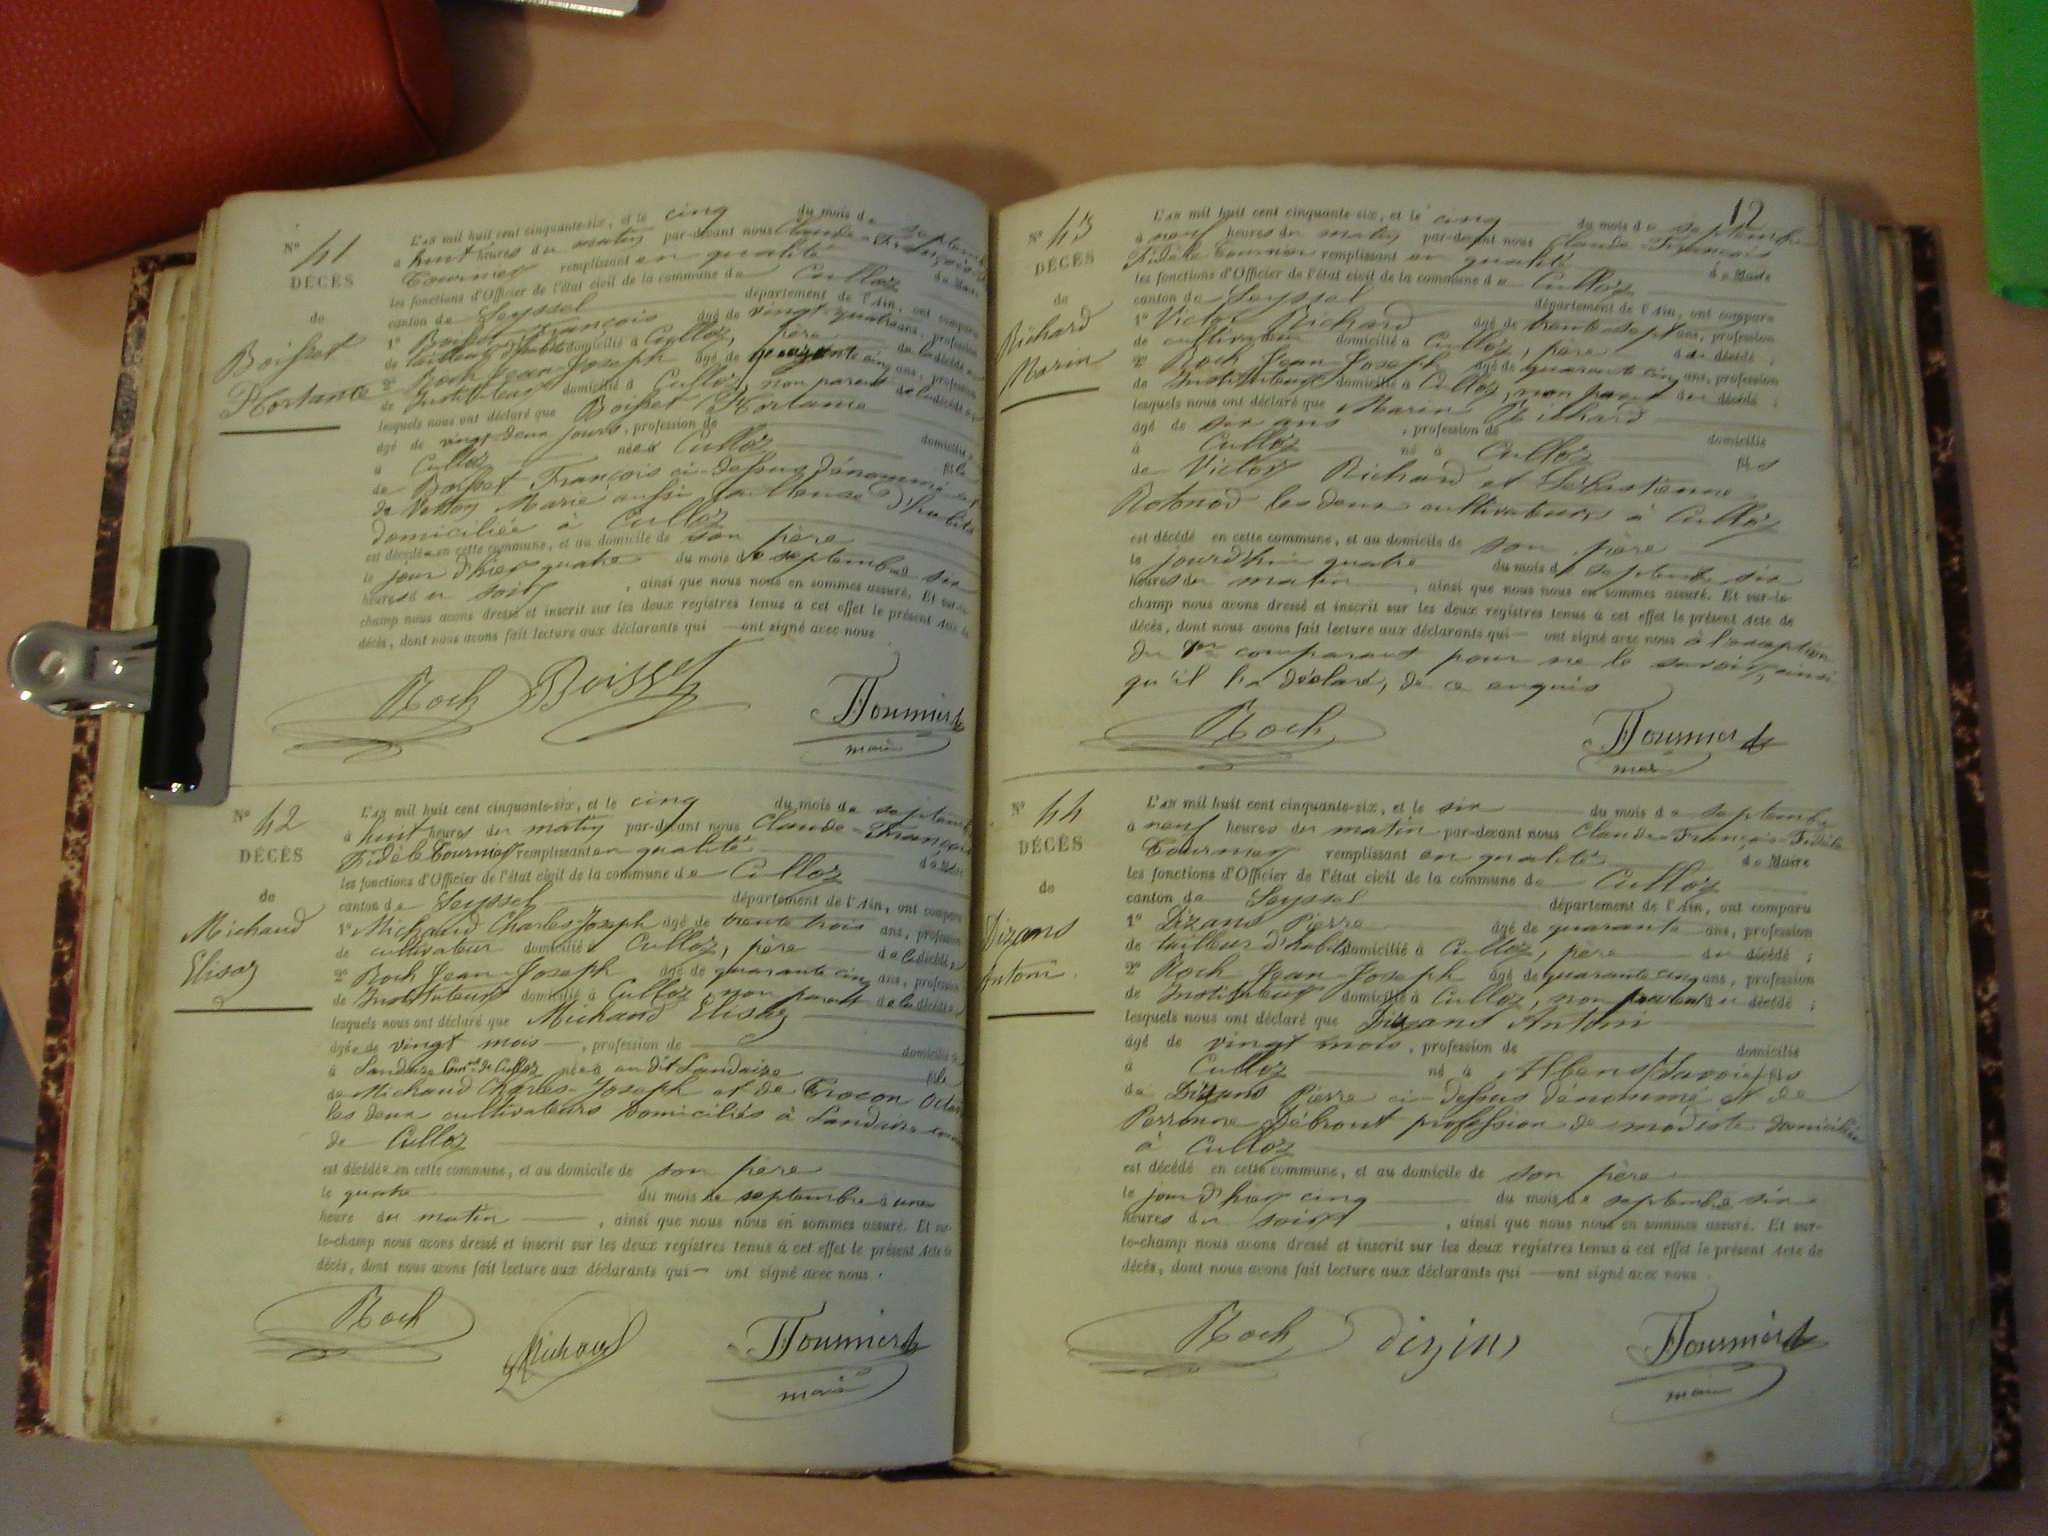 N° 41
DÉCÈS
de
Boisset
Hortance
L'an mil huit cent cinquante-six, et le cinq du mois de septembre
à huit heures du matin par-devant nous Claude-François
Tournier remplissant en qualité de Maire
les fonctions d'Officier de l'état civil de la commune de Culloz
canton de Seyssel département de l'Ain, ont comparu
1° Boisset François âgé de vingt-quatre ans, profession
de tailleur d'habits domicilié à Culloz, père de la décédée
2° Roch Jean-Joseph âgé de quarante cinq ans, profession
de Instituteur domicilié à Culloz, non parent de la décédée
lesquels nous ont déclaré que Boisset Hortance
âgé de vingt deux jours, profession de
à Culloz née à Culloz domiciliée
de Boisset François ci-dessus dénommé et fille
de Marie aussi tailleuse d'habits
domiciliée à Culloz
est décédée en cette commune, et au domicile de son père
le jour d'hier quatre du mois de septembre six
heures du soir, ainsi que nous nous en sommes assuré. Et sur-le-
champ nous avons dressé et inscrit sur les deux registres tenus à cet effet le présent Acte de
décès, dont nous avons fait lecture aux déclarants qui — ont signé avec nous
Roch Boisset Tournier
maire
N° 42
DÉCÈS
de
Michaud
Elisa
L'an mil huit cent cinquante-six, et le cinq du mois de septembre
à huit heures du matin par-devant nous Claude-François
Fidèle Tournier remplissant en qualité de Maire
les fonctions d'Officier de l'état civil de la commune de Culloz
canton de Seyssel département de l'Ain, ont comparu
1° Michaud Charles-Joseph âgé de trente trois ans, profession
de cultivateur domicilié à Culloz, père de la décédée,
2° Roch Jean-Joseph âgé de quarante cinq ans, profession
de Instituteur domicilié à Culloz, non parent de la décédée
lesquels nous ont déclaré que Michaud Elisa
âgée de vingt mois —, profession de domiciliée
à Landaize Com. de Culloz née à au dit Landaize fille
de Michaud Charles-Joseph et de Trocon
les deux cultivateurs domiciliés à Landaize
de Culloz
est décédée en cette commune, et au domicile de son père
le quatre du mois de septembre à une
heure du matin —, ainsi que nous nous en sommes assuré. Et sur-
le-champ nous avons dressé et inscrit sur les deux registres tenus à cet effet le présent Acte de
décès, dont nous avons fait lecture aux déclarants qui — ont signé avec nous.
Roch Michaud Tournier
maire
12
N° 43
DÉCÈS
de
Richard
Marin
L'an mil huit cent cinquante-six, et le cinq du mois de septembre
à neuf heures du matin par-devant nous Claude-François
Fidèle Tournier remplissant en qualité de Maire
les fonctions d'Officier de l'état civil de la commune de Culloz
canton de Seyssel département de l'Ain, ont comparu
1° Victor Richard âgé de trente-sept ans, profession
de cultivateur domicilié à Culloz, père du décédé ;
2° Roch Jean-Joseph âgé de quarante cinq ans, profession
de Instituteur domicilié à Culloz, non parent du décédé ;
lesquels nous ont déclaré que Marin Richard
âgé de six ans, profession de domicilié
à Culloz né à Culloz fils
de Victor Richard et Sébastienne
Botonod les deux cultivateurs à Culloz
est décédé en cette commune, et au domicile de son père
le jour d'hier quatre du mois de septembre six
heures du matin, ainsi que nous nous en sommes assuré. Et sur-le-
champ nous avons dressé et inscrit sur les deux registres tenus à cet effet le présent Acte de
décès, dont nous avons fait lecture aux déclarants qui — ont signé avec nous à l'exception
du 1er comparant pour ne le savoir, ainsi
qu'il l'a déclaré, de ce enquis
Roch Tournier
maire
N° 44
DÉCÈS
de
Dizans
Antoni
L'an mil huit cent cinquante-six, et le six du mois de septembre
à neuf heures du matin par-devant nous Claude-François-Fidèle
Tournier remplissant en qualité de Maire
les fonctions d'Officier de l'état civil de la commune de Culloz
canton de Seyssel département de l'Ain, ont comparu
1° Dizans Pierre âgé de quarante ans, profession
de tailleur d'habits domicilié à Culloz, père du décédé ;
2° Roch Jean-Joseph âgé de quarante cinq ans, profession
de Instituteur domicilié à Culloz, non parent du décédé ;
lesquels nous ont déclaré que Dizans Antoni
âgé de vingt mois, profession de domicilié
à Culloz né à Albens (Savoie) fils
de Dizans Pierre ci-dessus dénommé et de
Perronne Débrout profession de modiste domiciliée
à Culloz
est décédé en cette commune, et au domicile de son père
le jour d'hier cinq du mois de septembre six
heures du soir, ainsi que nous nous en sommes assuré. Et sur-
le-champ nous avons dressé et inscrit sur les deux registres tenus à cet effet le présent Acte de
décès, dont nous avons fait lecture aux déclarants qui — ont signé avec nous.
Roch dizins Tournier
maire